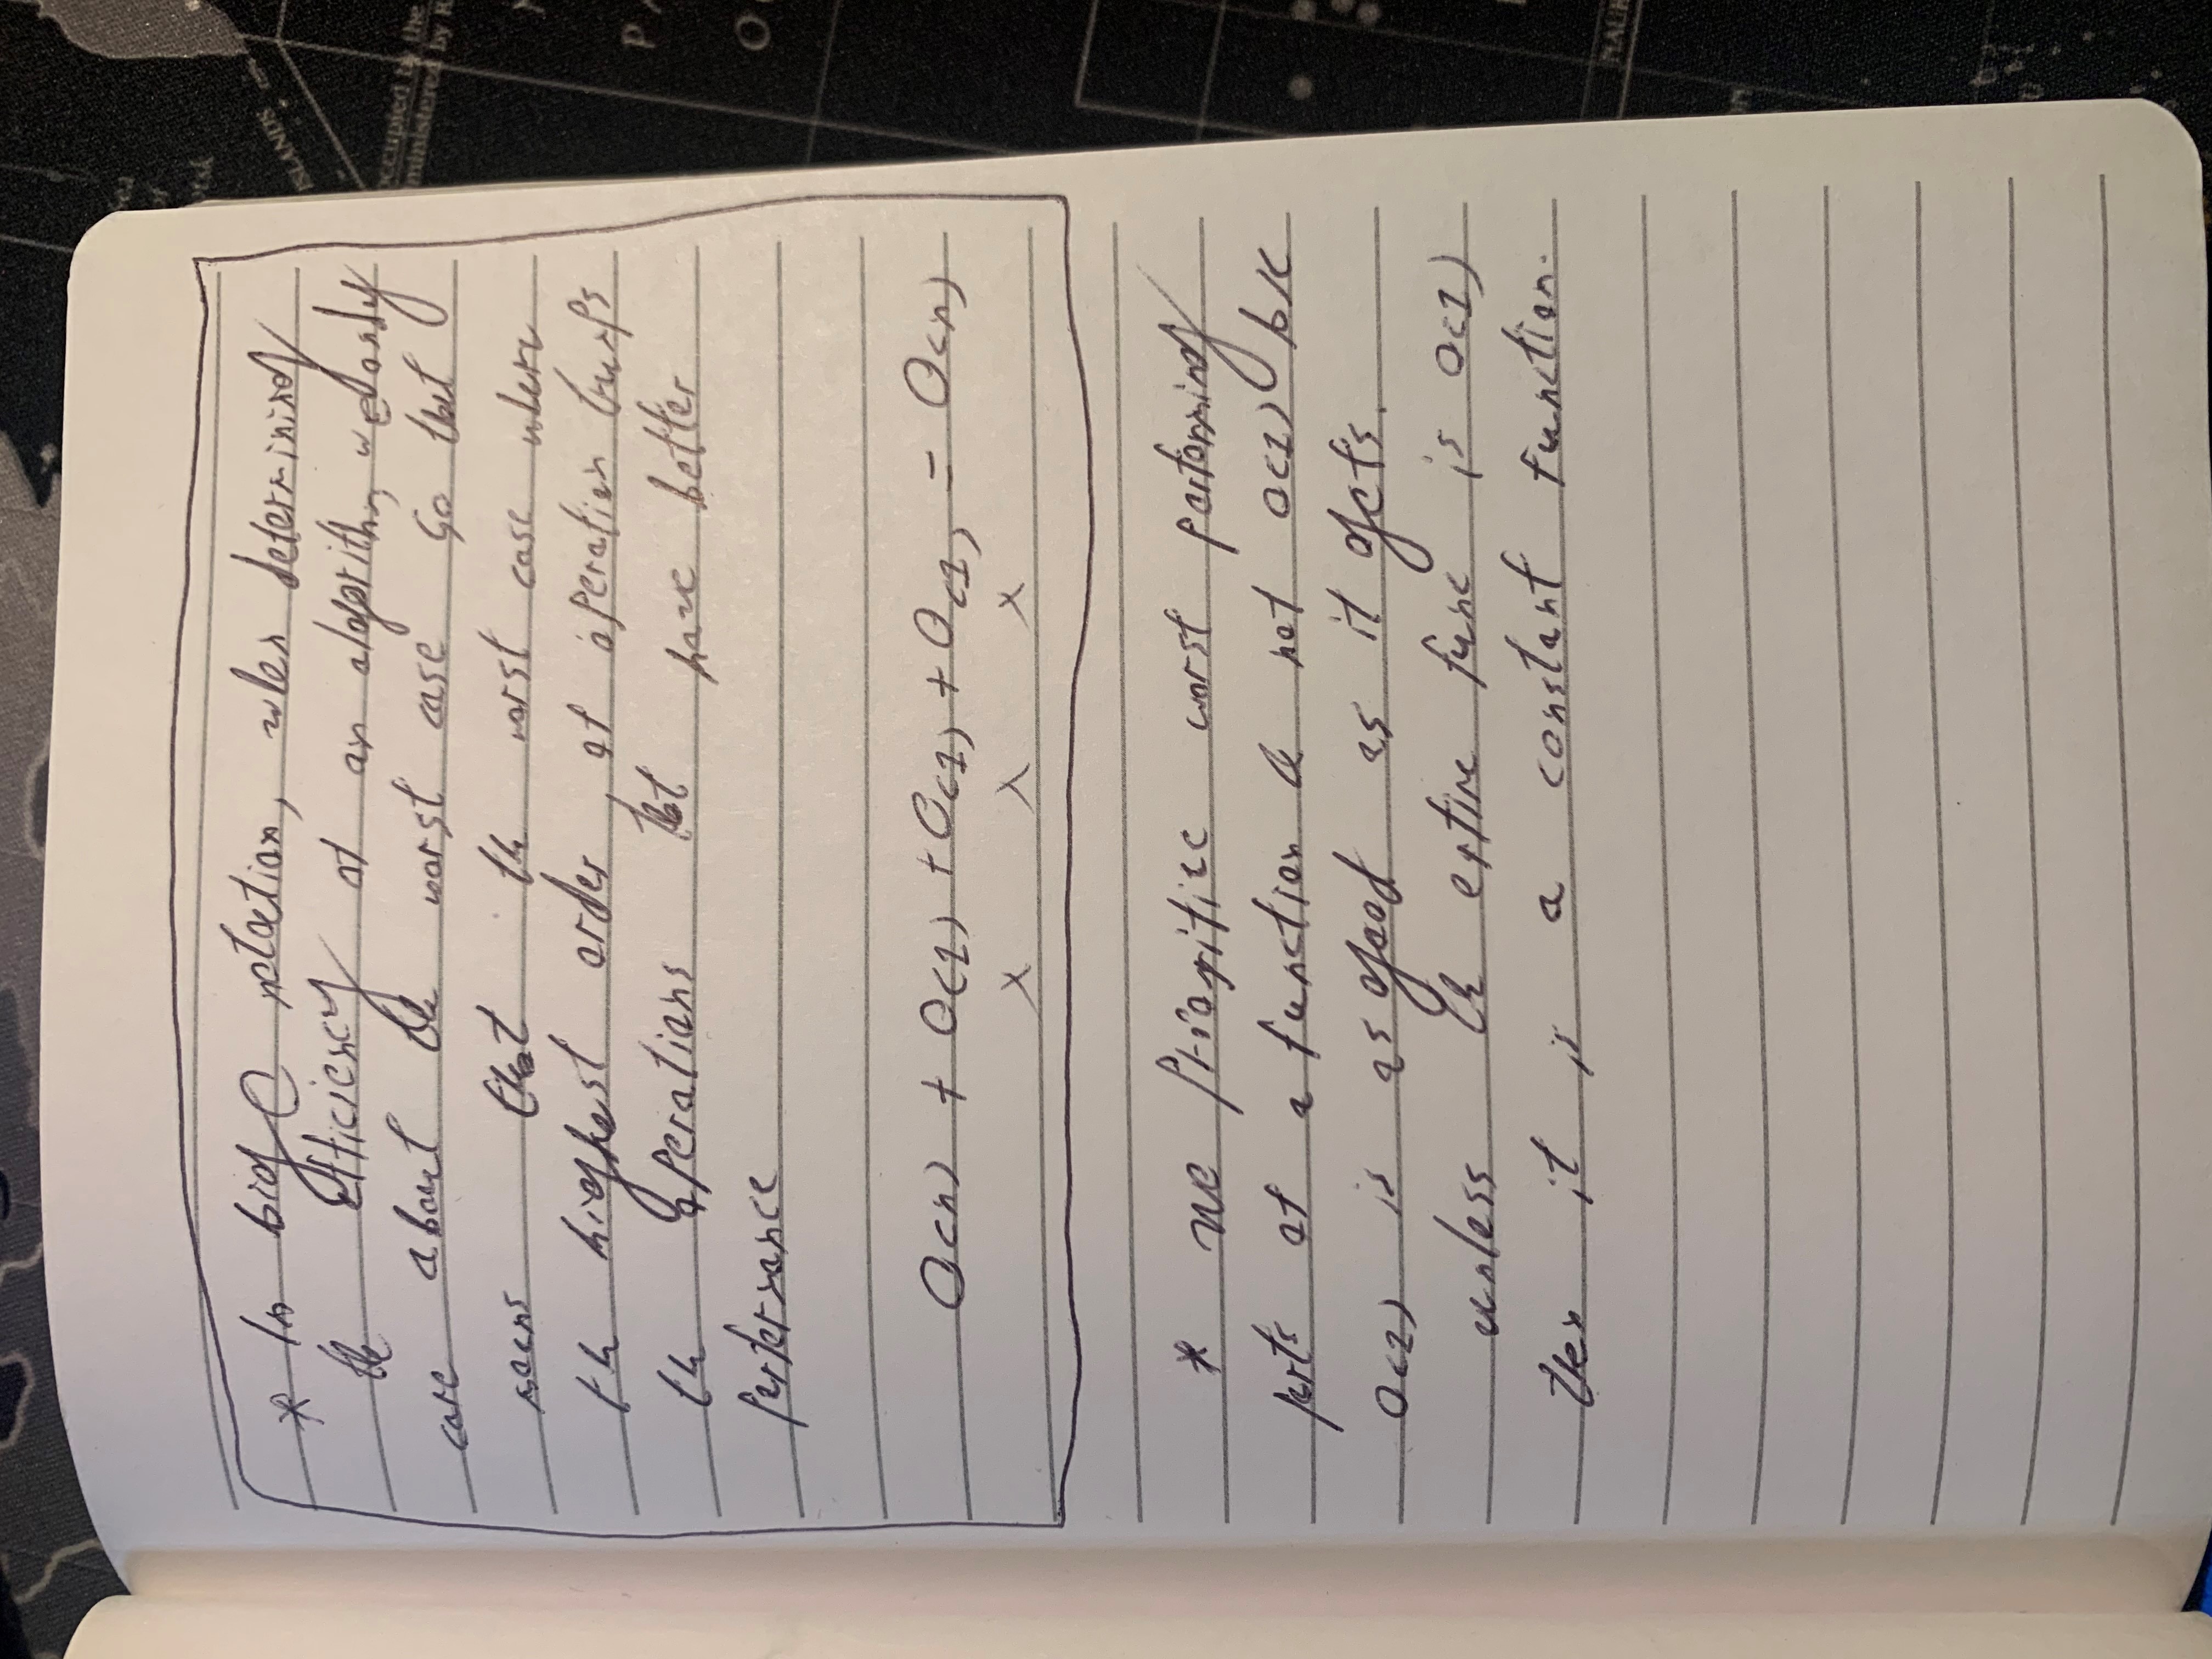 * In big O notation, when determining
the efficiency of an algorithm, we only
care about the worst case so that
means that the worst case where
the highest order of operation trumps
the operations that have better
performance
O(n) + O(1) + O(1) + O(1) = O(n)
x x x
* we prioritize worst performing
parts of a function & not O(1) b/c
O(1) is as good as it gets.
unless the entire func is O(1)
then it is a constant function.